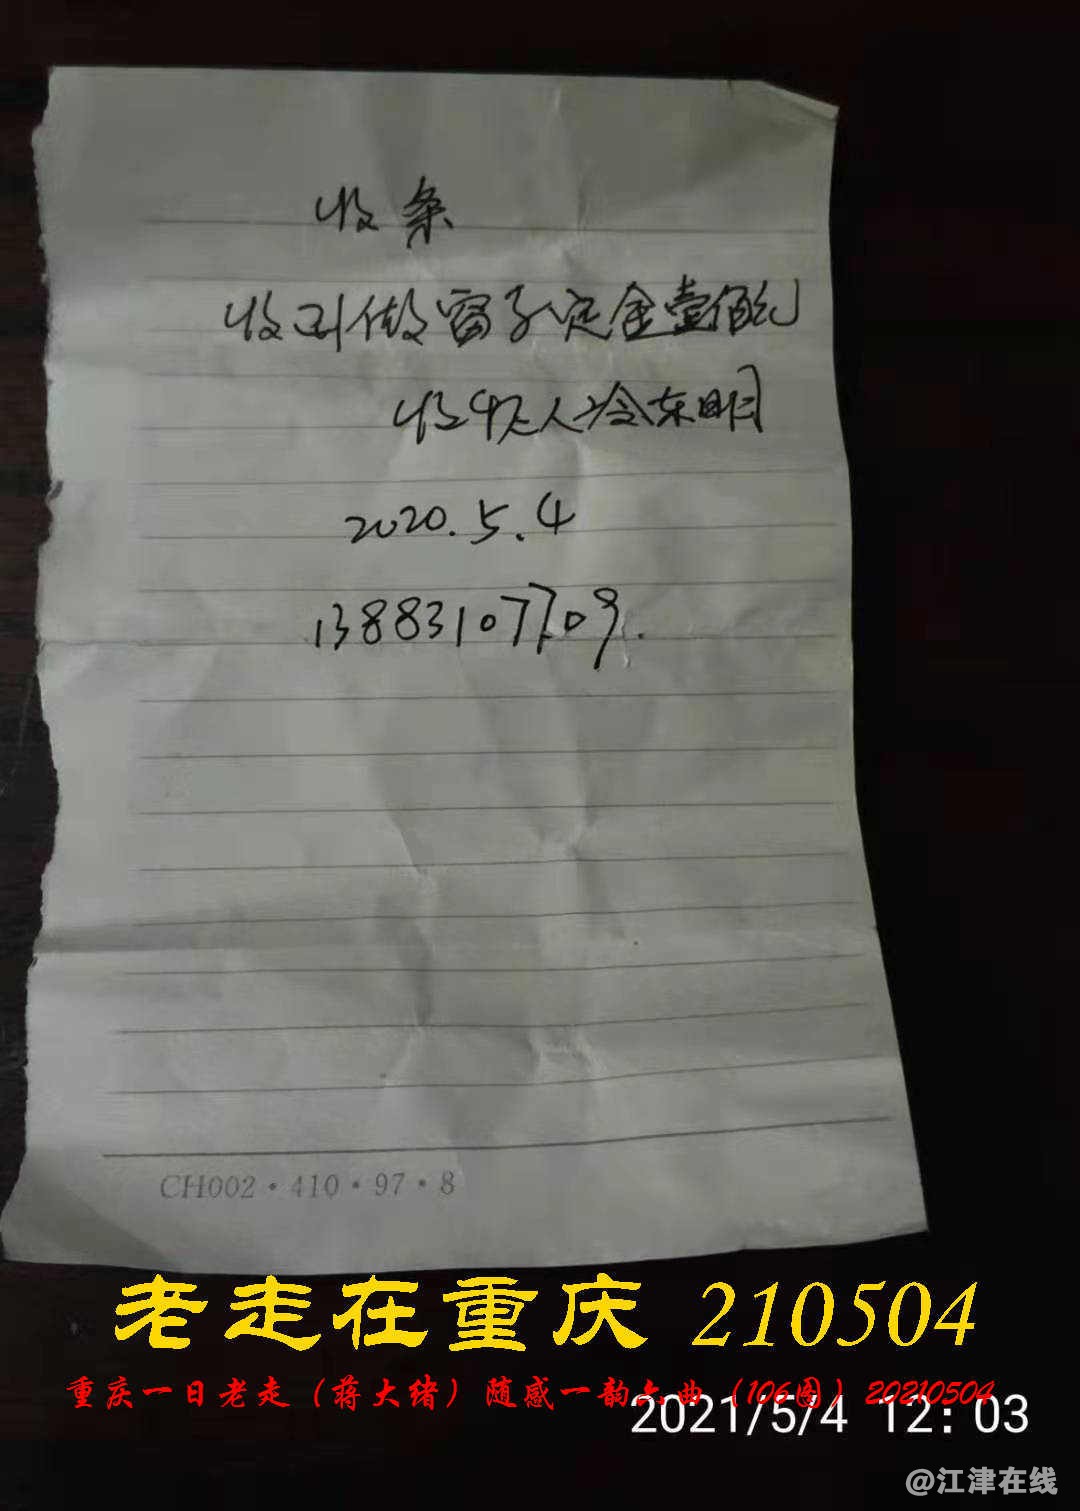 收条
收到做窗子定金壹佰元
收款人冷东明
2020.5.4
13883107709.
CH002·410·97·8
老走在重庆 210504
重庆一日老走（蒋大绪）随感一韵六曲（106图）20210504
2021/5/4 12:03
@江津在线